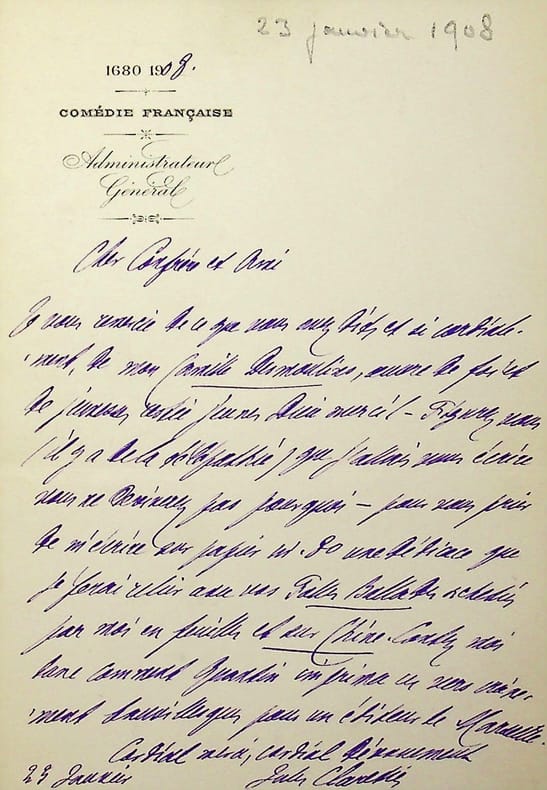 23 janvier 1908
1680 1908.
COMÉDIE FRANÇAISE
Administrateur
Général
Cher Confrère et Ami
Je vous remercie de ce que vous avez dit, et si cordiale-
ment, de mon Camille Desmoulins, œuvre de foi et
de jeunesse, restée jeune. Donc merci! — Figurez-vous
(il y a de la télépathie) que j'allais vous écrire
vous ne devinerez pas pourquoi — pour vous prier
de m'écrire sur papier in-80 une dédicace que
je ferai relier avec vos Folles Ballades achetées
par moi en feuilles et sur Chine. Contez moi
donc comment Quantin imprima ces vers
ment banvillesques pour un éditeur de Marseille.
Cordial merci, cordial dévouement
23 Janvier
Jules Claretie